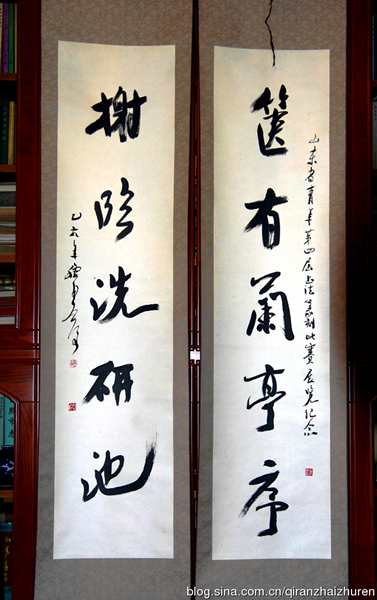 篋有蘭亭序
山东省青年第四届书法篆刻比赛展览纪念
榭临洗研池
乙亥年
blog.sina.com.cn/qiranzhaizhuren